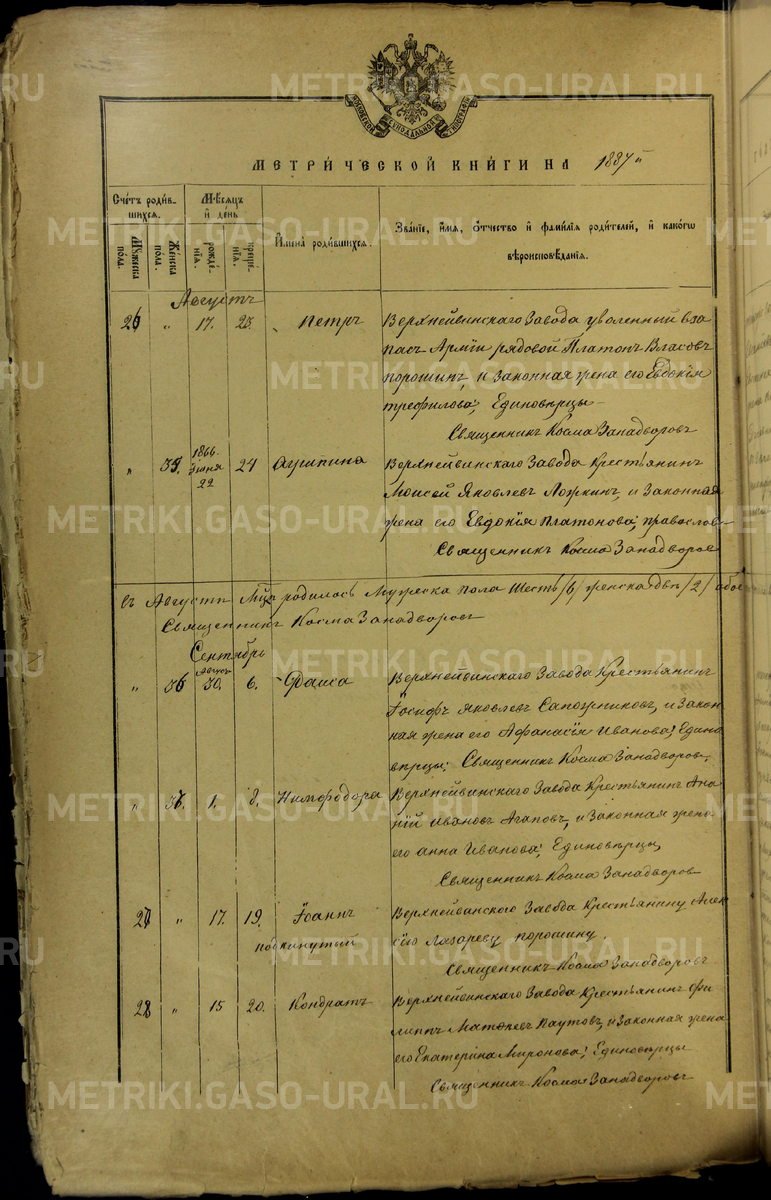 МОСКОВСКОЙ СѴНОДАЛЬНОЙ ТИПОГРАФІИ
МЕТРИ́ЧЕСКОЙ КНИ́ГИ НА 1887й
Сче́тъ роди́в-
шихся.
Мѣ́сяцъ
и҆ день
Му́жеска
пола.
Же́нска
пола.
рожде́-
нїѧ.
креще́-
нїѧ.
И҆мена̀ роди́вшихся.
Зва́нїе, и҆́мѧ, ѻ҆́тчество и҆ фами́лїѧ роди́телей, и҆ како́гѡ
вѣроисповѣ́данїѧ.
Августъ
26 " 17. 23. Петръ Верхнейвинскаго Завода уволенный въ за
пасъ Арміи рядовой Платонъ Власовъ
порошинъ, и законная жена его Евдокія
трефилова; Единовѣрцы
Священникъ Косма Западворовъ
" 35. 1866. Іюня 22 24 Агрипина Верхнейвинскаго Завода Крестьянинъ
Моисей Яковлевъ Ложкинъ, и Законная
жена его Евдокія платонова; правослов
Священникъ Косма Западворовъ
Въ Августѣ Мцѣ родилось Мужеска пола Шесть /6/ женска двѣ /2/ обое
Священникъ Косма Западворовъ
Сентябрь
" 36 Август 30. 6. Фаиса Верхнейвинскаго Завода Крестьянинъ
Іосифъ Яковлевъ Сапожниковъ, и Закон
ная жена его Афанасія Иванова; Едино
вѣрцы; Священникъ Косма Западворовъ.
" 1. 8. Нимфодора Верхнейвинскаго Завода Крестьянинъ Ана
ній Ивановъ Агаповъ, и Законная жена
его анна Иванова; Единовѣрцы,
Священникъ Косма Западворовъ
27 " 17. 19. Іоаннъ Верхнейвинского Завода Крестьянину Алек
сѣю Лазареву порошину.
подкинутый
Священникъ Косма Западворовъ
28 " 15 20. Кондратъ Верхнейвинскаго Завода Крестьянинъ Фи
липпъ Матѳеевъ Паутовъ, и Законная жена
его Екатерина Миронова; Единовѣрцы
Священникъ Косма Западворовъ
METRIKI.GASO-URAL.RU